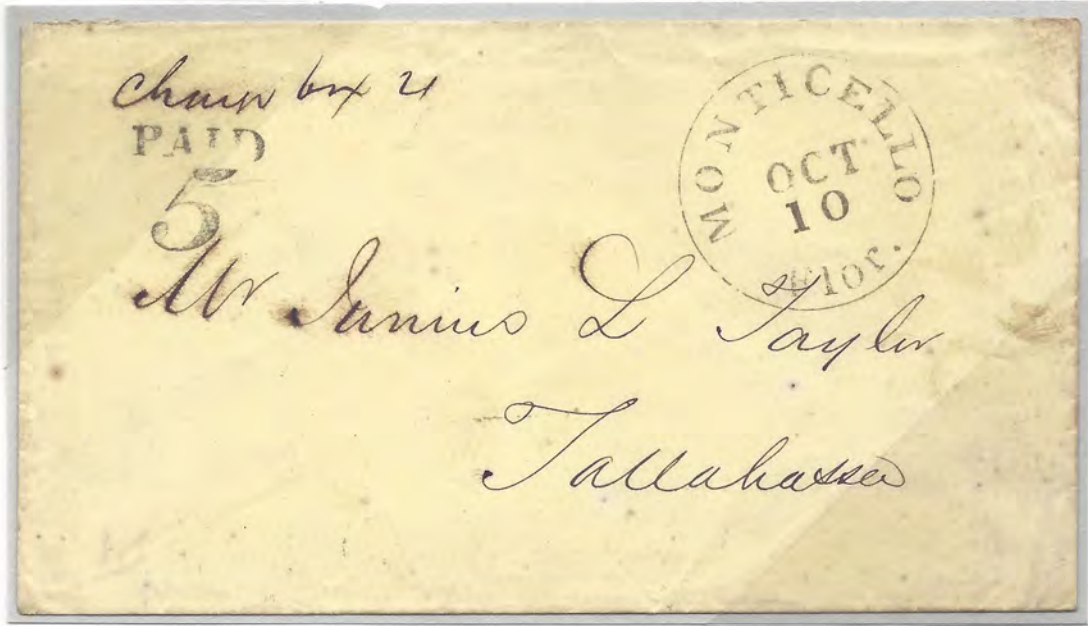 Charge box 21
PAID
5
MONTICELLO
OCT
10
Flor.
Mr Junius L Taylor
Tallahassee